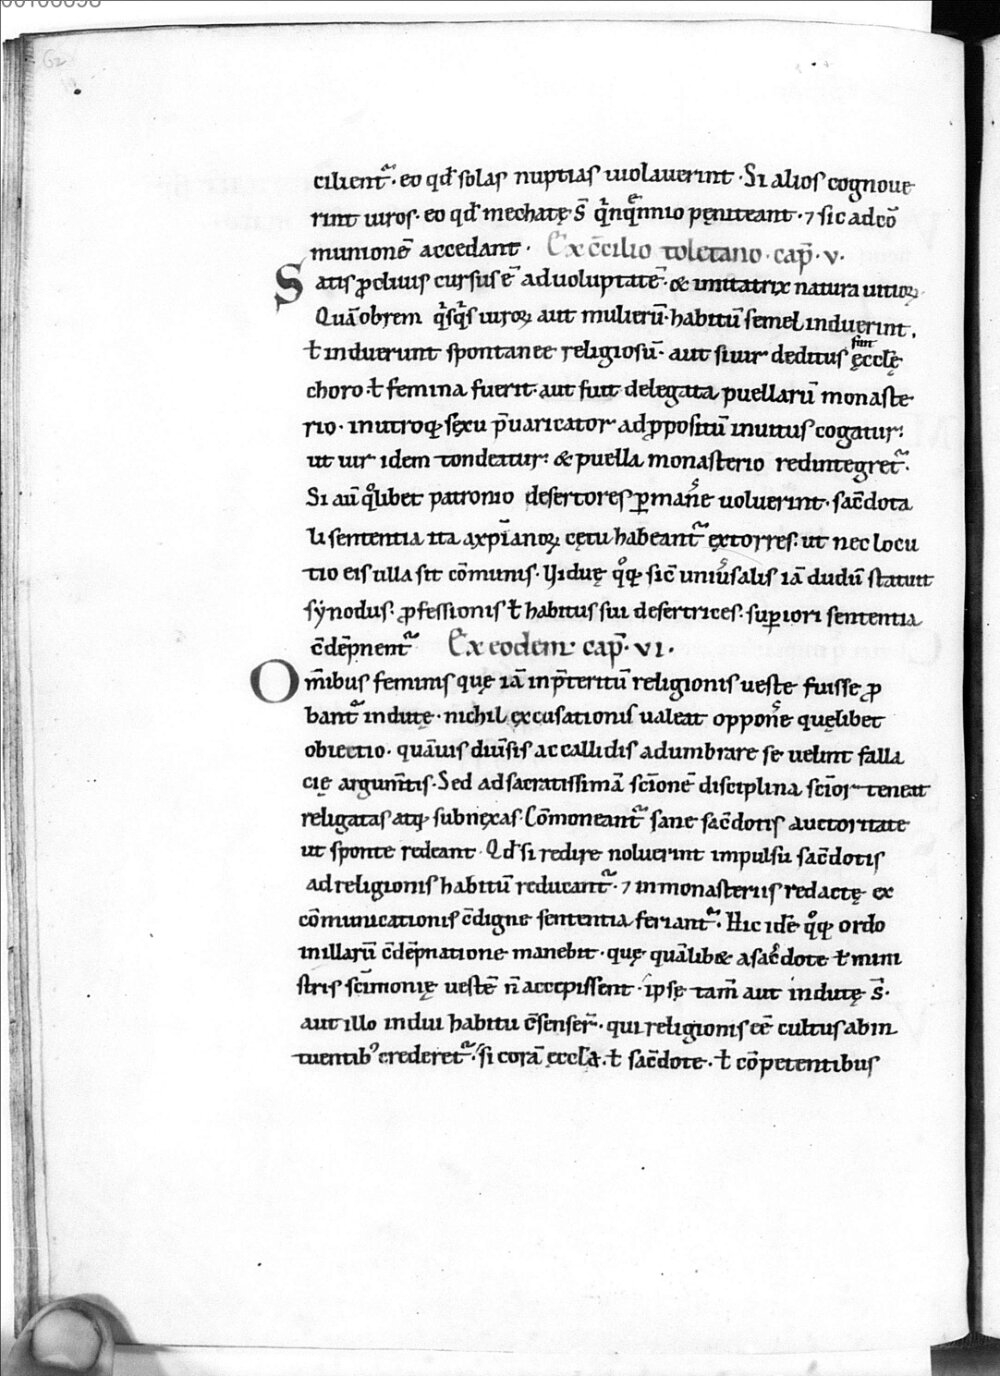 cilient᷑· eo qđ solas nuptias uiolauerint · Si alios cognoue
rint uiros· eo qđ mechatę s̄ qͥnqͤnnio pęniteant · ⁊ sic ad cō
munionē accedant · Ex c̄cilio toletano · cap̄ · v ·
Satis ꝓcliuis cursus ē ad uoluptatē· & imitatrix natura uitioꝝ·
Quā obrem qͥsqͥs uiroꝝ aut mulierū· habitū semel induerint,
ƚ induerunt spontanee religiosū· aut si uir deditus fuit ęcclę
choro · ƚ femina fuerit· aut fuit delegata puellarū monaste
rio · in utroqꝫ sexu p̄uaricator ad ꝓpositū inuitus cogatur:
ut uir idem tondeatur: & puella monasterio redintegret᷑·
Si aū qͦlibet patronio desertores ꝑmane͛ uoluerint· sac̄dota
li sententia ita a xp̄ianoꝝ cętu habeant᷑ extorres: ut nec locu
tio eis ulla sit cōmunis· Uiduę qͦqꝫ sic̄ uniu͛salis iā dudū statuit
sẏnodus: ꝓfessionis ƚ habitus sui desertrices· suꝑiori sententia
c̄dēpnent᷑ Ex eodem cap̄ · vi ·
Om̄ibus feminis quę iā in p̄teritū religionis ueste fuisse ꝓ
bant᷑ indutę · nichil excusationis ualeat oppone͛ quęlibet
obiectio · quāuis diu͛sis ac callidis adumbrare se uelint falla
cię argum̄tis· Sed ad sacratissimā sc̄ionē disciplina sc̄ior teneat
religatas atqꝫ subnexas· Cōmoneant᷑ sane sac̄dotis auctoritate
ut sponte redeant · Qđ si redire noluerint impulsu sac̄dotis
ad religionis habitū reducant᷑· ⁊ in monasteriis redactę ex
cōmunicationis c̄digne sententia feriant᷑· Hic idē qͦqꝫ ordo
in illarū c̄dēpnatione manebit · quę quālib& a sac̄dote ƚ mini
stris sc̄imonię uestē n̄ accepissent · ipsę tam̄ aut indutę s̄·
aut illo indui habitu c̄senser̄· qui religionis eē cultus ab in
tuentibꝰ crederet᷑· si corā ęccl̄a· ƚ sac̄dote · ƚ cōpetentibus